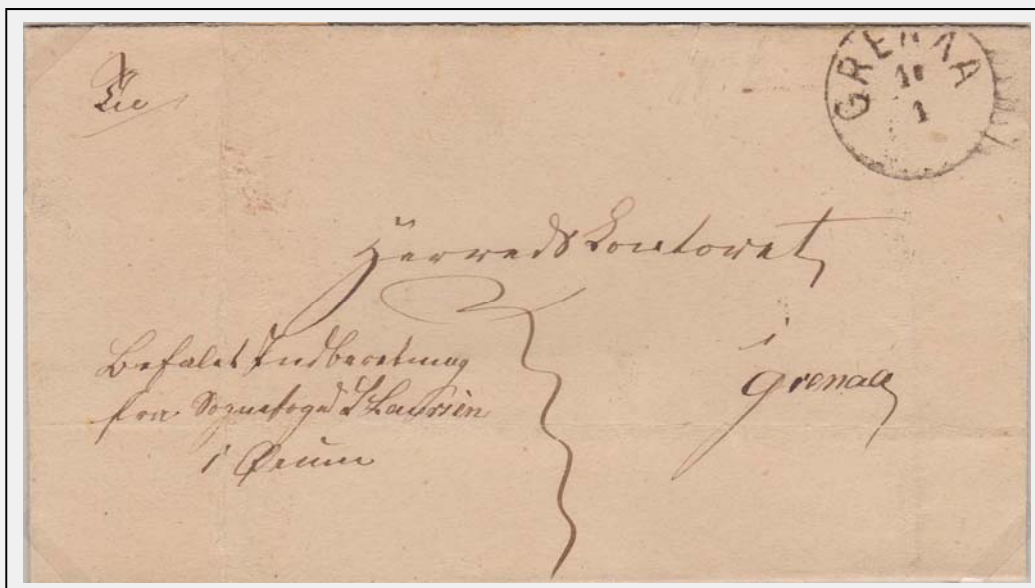 GRENAA
1
Herredskontoret
i
Grenaa
Befalet Indberetning
fra Sognefoged Laursen
i Ørum